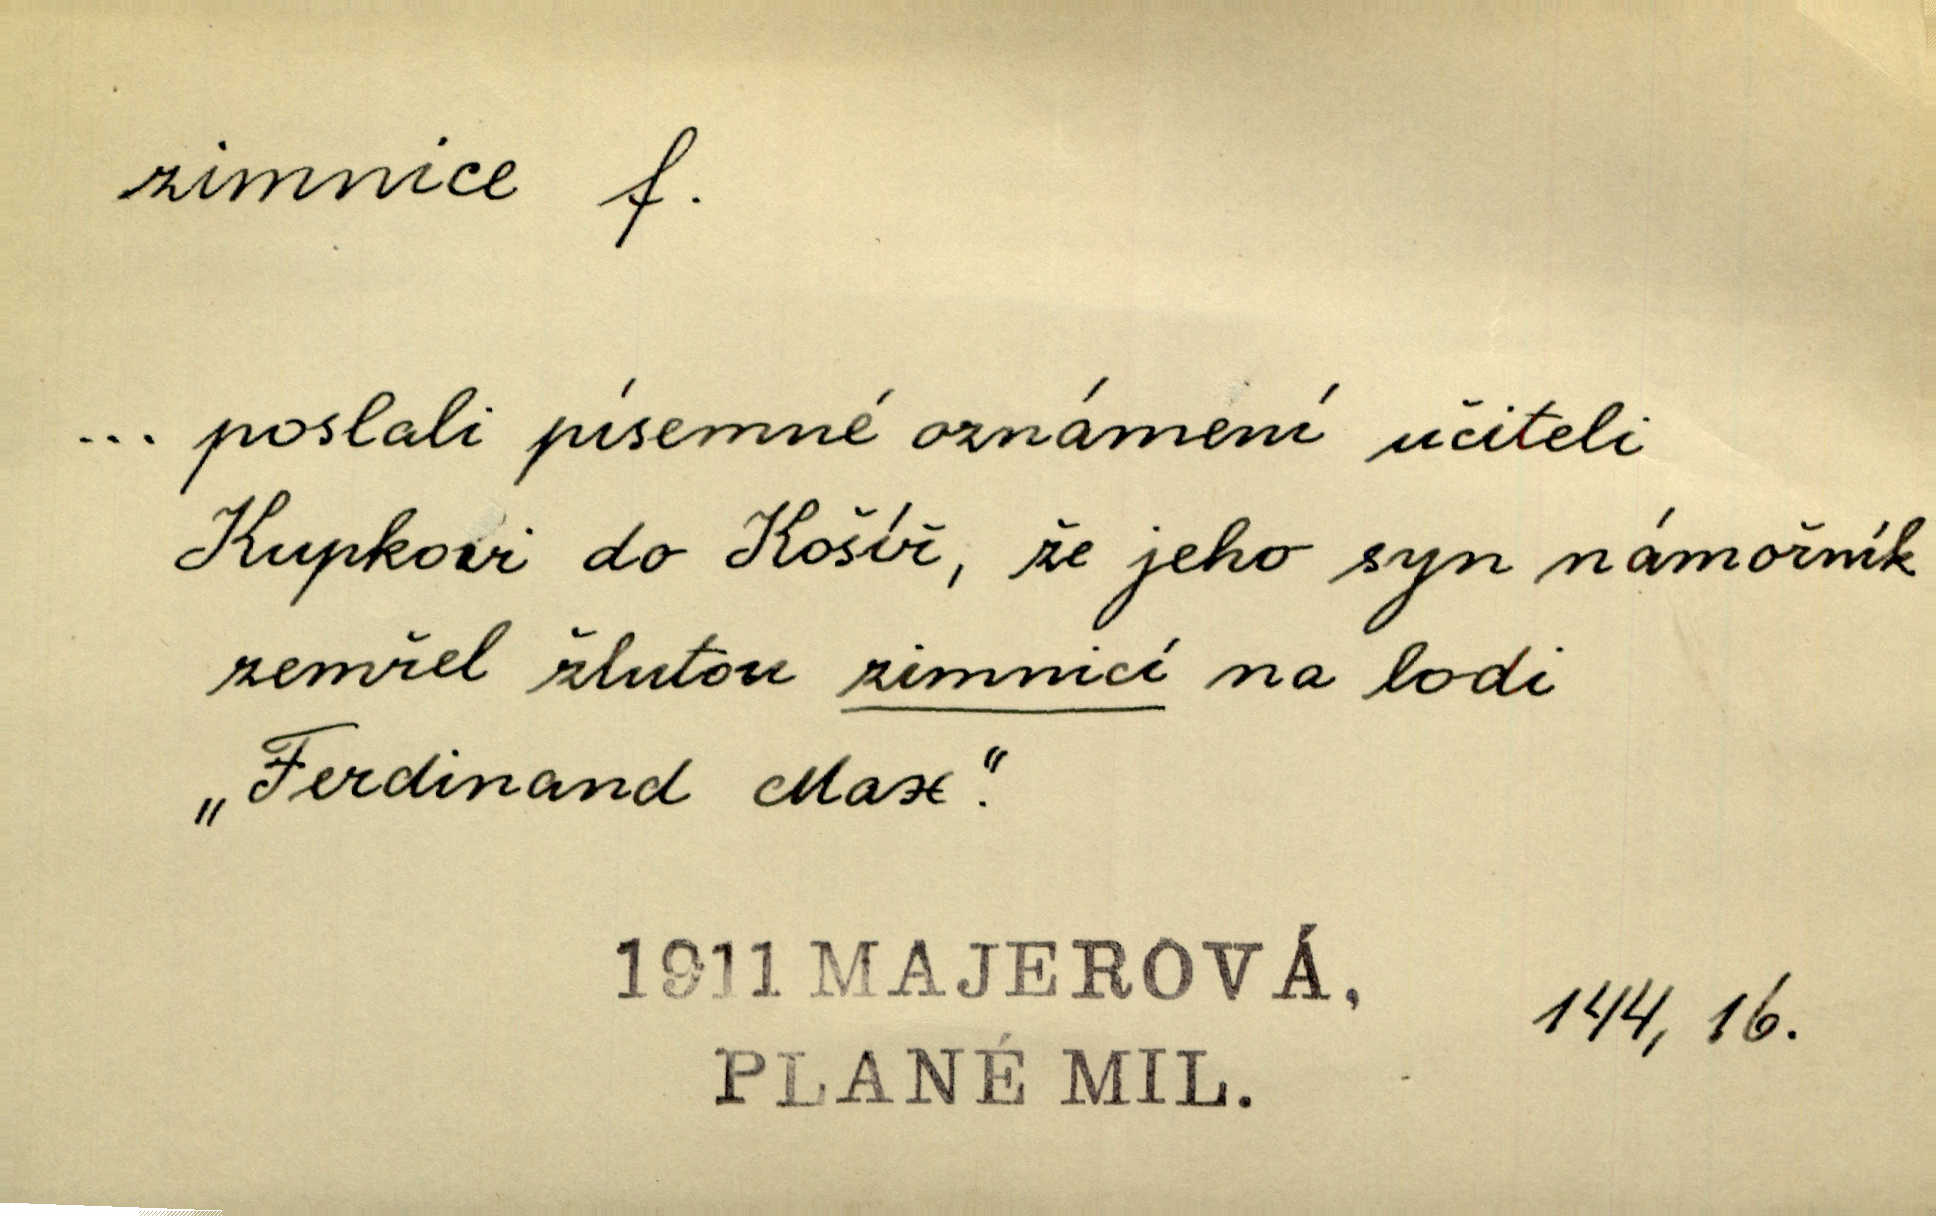 zimnice f.
... poslali písemné oznámení učiteli
Kupkovi do Košíř, že jeho syn námořník
zemřel žlutou zimnicí na lodi
„Ferdinand Max“.
1911 MAJEROVÁ,
PLANÉ MIL.
144, 16.